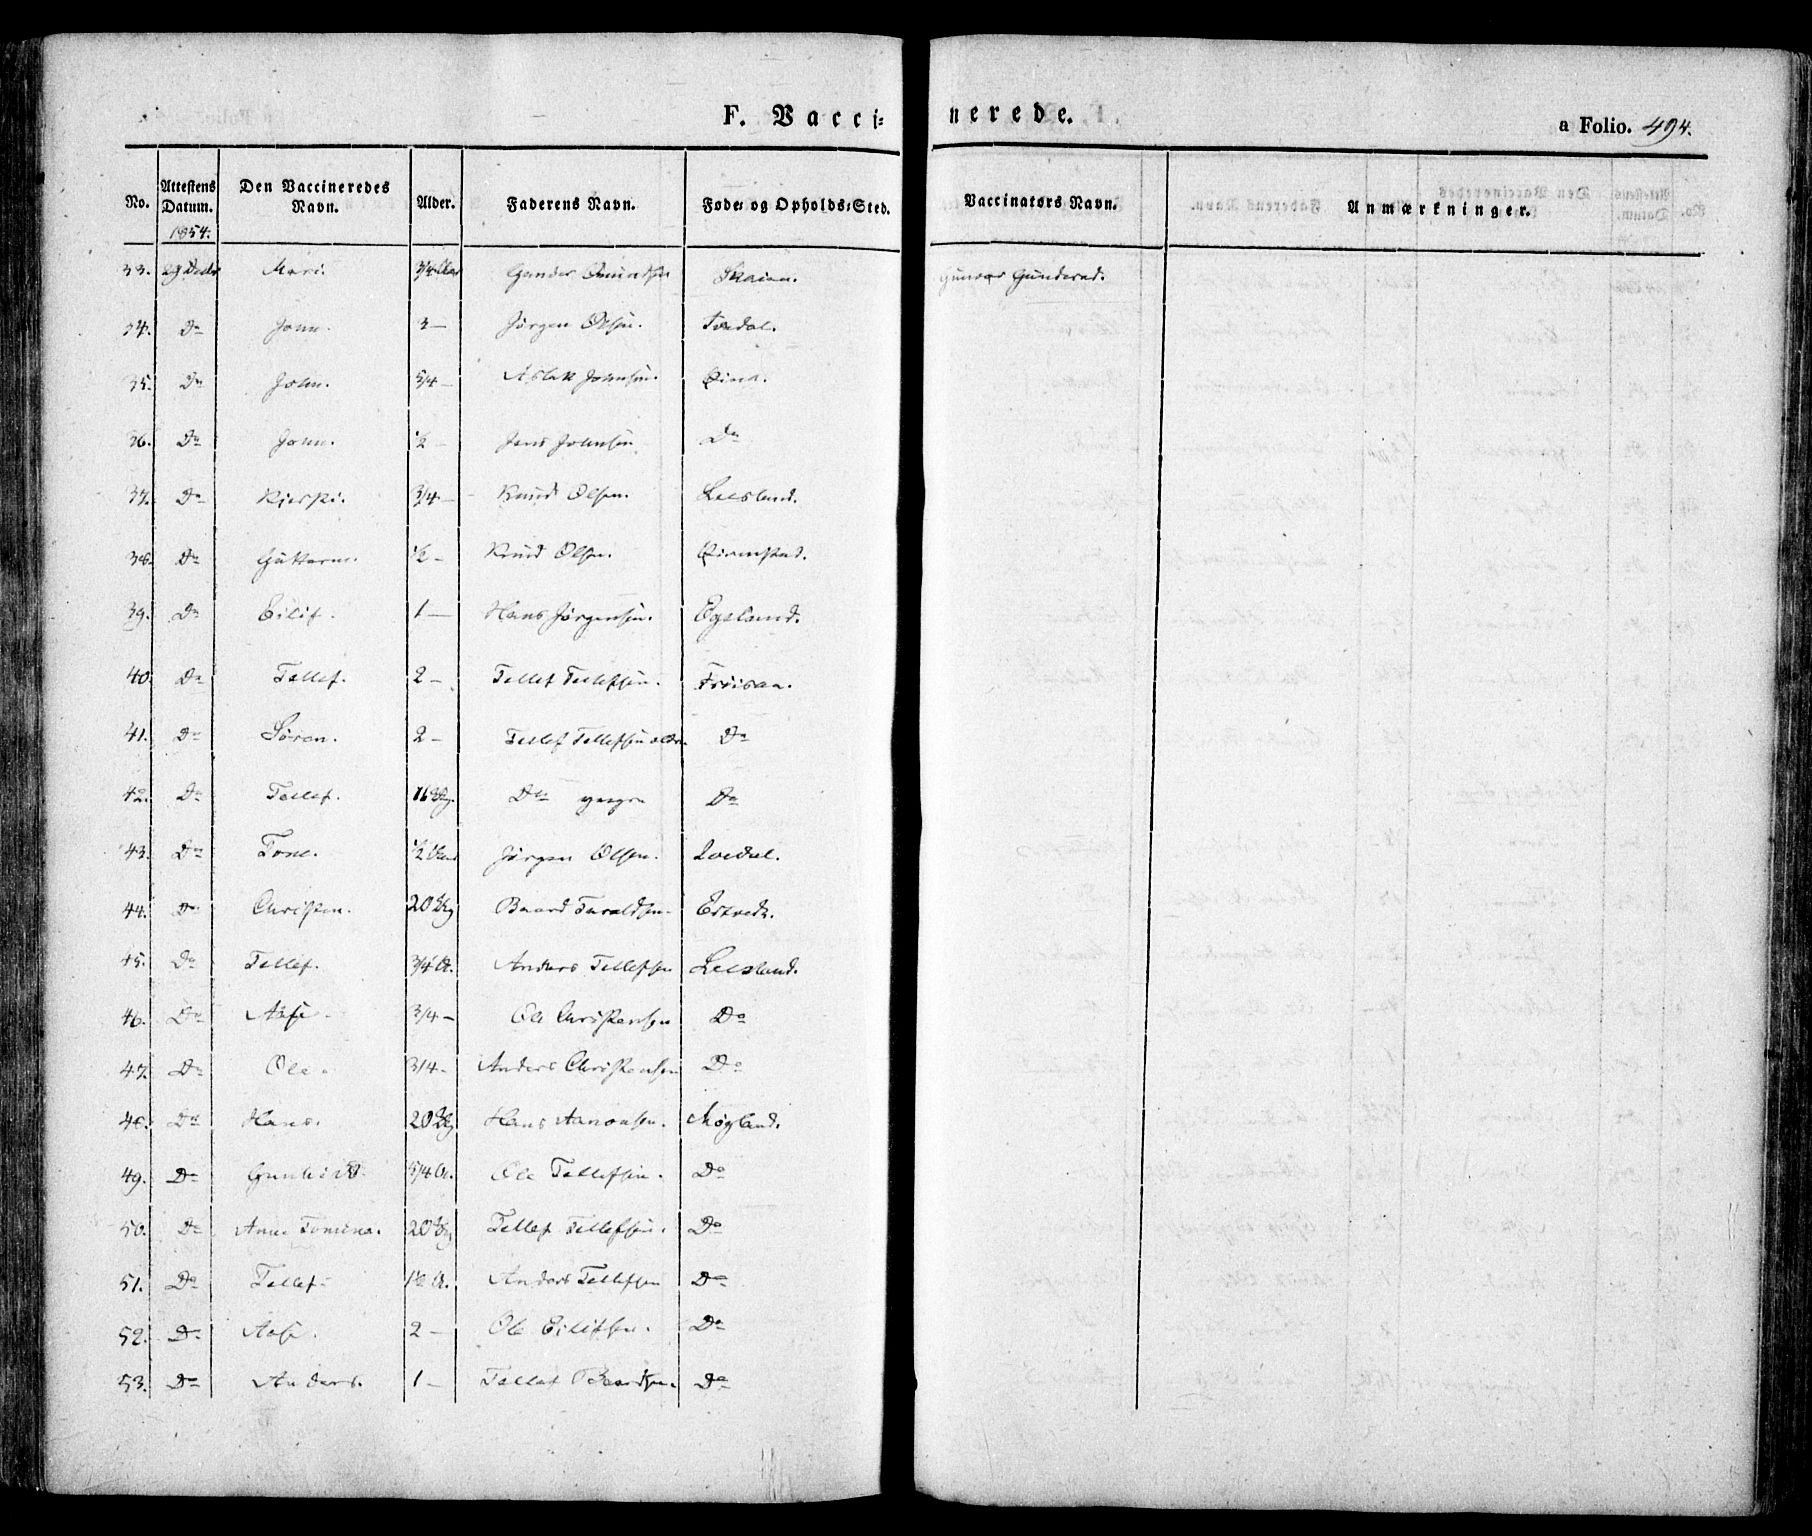 F. Vacci=nerede.
a Folio. 494.
No. | Attestens Datum. | Den Vaccineredes Navn. | Alder. | Faderens Navn. | Føde= og Opholds=Sted. | Vaccinators Navn. | Anmærkninger.
1854.
33. | 29 Decbr | Mari. | 3/4 Aar | Gunder Omundsen | Skaien. | Gunder.
34. | Do | John. | 3 — | Jørgen Olsen. | Tvedal.
35. | Do | John. | 5/4 — | Aslak Johnsen.
36. | Do | John. | 1/2 — | Jens Johnsen | Do
37. | Do | Kjersti. | 3/4 — | Knud Olsen. | Leesland.
38. | Do | Guttorm. | 1/2 — | Knud Olsen.
39. | Do | Eilif. | 1 — | Hans Jørgensen. | Egeland.
40. | Do | Tellef. | 2 — | Tellef Tellefsen. | Frøisaa.
41. | Do | Søren. | 2 — | Tellef Tellefsen ældre | Do
42. | Do | Tellef. | 16 Ug. | Do yngre | Do
43. | Do | Tone. | 1/2 Aar | Jørgen Olsen.
44. | Do | Christen. | 20 Ug | Baard Taraldsen. | Ertveds.
45. | Do | Tellef. | 3/4 A. | Anders Tellefsen | Leesland.
46. | Do | Aase | 3/4 — | Ole Christensen | Do
47. | Do | Ole. | 3/4 — | Anders Christensen | Do
48. | Do | Hans. | 20 Ug | Hans Aanonsen. | Møgland.
49. | Do | Gunhild | 5/4 A. | Ole Tellefsen. | Do
50. | Do | Anne Tomina. | 20 Ug | Tellef Tellefsen. | Do
51. | Do | Tellef | 1 1/2 A. | Anders Tellefsen | Do
52. | Do | Aase. | 2 — | Ole Eilifsen. | Do
53. | Do | Anders. | 1 — | Tellef Baardsen. | Do